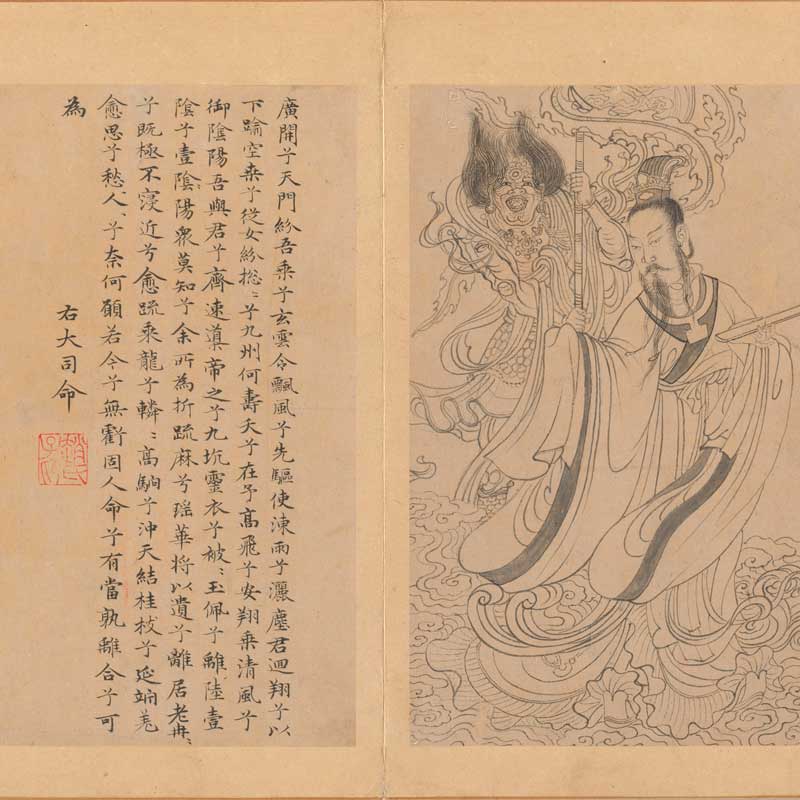 廣開兮天門紛吾乘兮玄雲令飄風兮先驅使涷雨兮灑塵君迴翔兮以
下踰空桒兮從女紛総〻兮九州何壽夭兮在予高飛兮安翔乘清風兮
御陰陽吾與君兮齊速導帝之兮九坑靈衣兮被〻玉佩兮離陸壹
陰兮壹陰陽衆莫知兮余所為折疏麻兮瑶華將以遺兮離居老冉〻
兮既極不寖近兮愈疏乘龍兮轔〻高駉兮沖天結桂枝兮延竚羌
愈思兮愁人〻兮奈何願若今兮無虧固人命兮有當孰離合兮可
為
右大司命